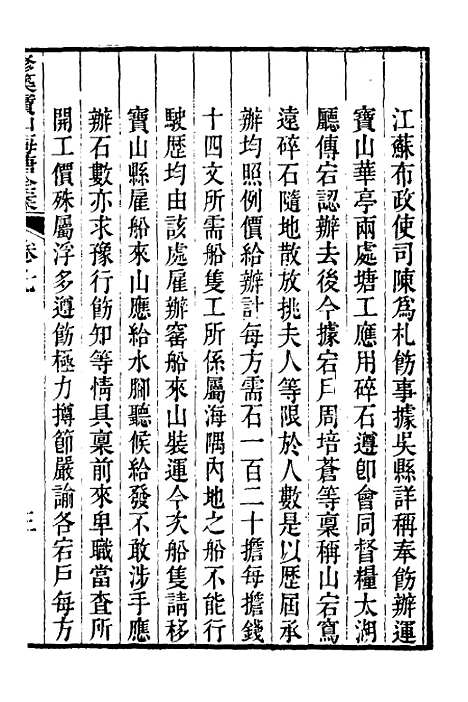 江蘇布政使司陳爲札飭事據吳縣詳稱奉飭辦運
寶山華亭兩處塘工應用碎石遵卽會同督糧太湖
廳傳宕認辦去後今據宕戶周培蒼等稟稱山宕寫
遠碎石隨地散放挑夫人等限於人數是以歷屆承
辦均照例價給辦計每方需石一百二十擔每擔錢
十四文所需船隻工所係屬海隅內地之船不能行
駛歷均由該處雇辦審船來山裝運今次船隻請移
寶山縣雇船來山應給水腳聽候給發不敢涉手應
辦石數亦求豫行飭知等情具稟前來卑職當查所
開工價殊屬浮多遵飭極力撙節嚴諭各宕戶每方
寶山海塘全案
卷之九
三